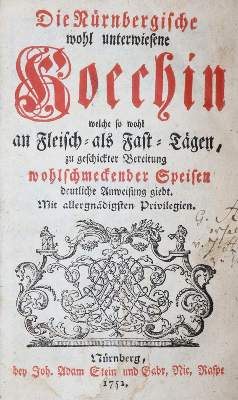 Die Nürnbergische
wohl unterwiesene
Koechin
welche so wohl
an Fleisch- als Fast- Tägen,
zu geschickter Bereitung
wohlschmeckender Speisen
deutliche Anweisung giebt.
Mit allergnädigsten Privilegien.
Nürnberg,
bey Joh. Adam Stein und Gabr. Nic. Raspe
1752.